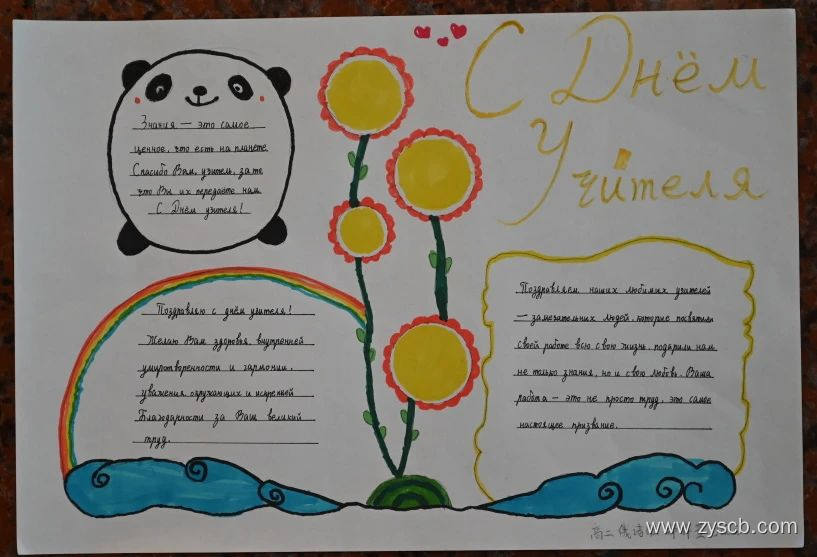 С Днём
Учителя
Знания — это самое
ценное, что есть на планете
Спасибо Вам, учитель, за те
что Вы их передаёте нам
С Днём учителя!
Поздравляю с днём учителя!
Желаю Вам здоровья, внутренней
умиротворенности и гармонии,
уважения окружающих и искренней
благодарности за Ваш великий
труд.
Поздравляем наших любимых учителей
— замечательных людей, которые посвятили
своей работе всю свою жизнь, подарили нам
не только знания, но и свою любовь. Ваша
работа — это не просто труд, это самое
настоящее призвание.
高二
www.zyscb.com